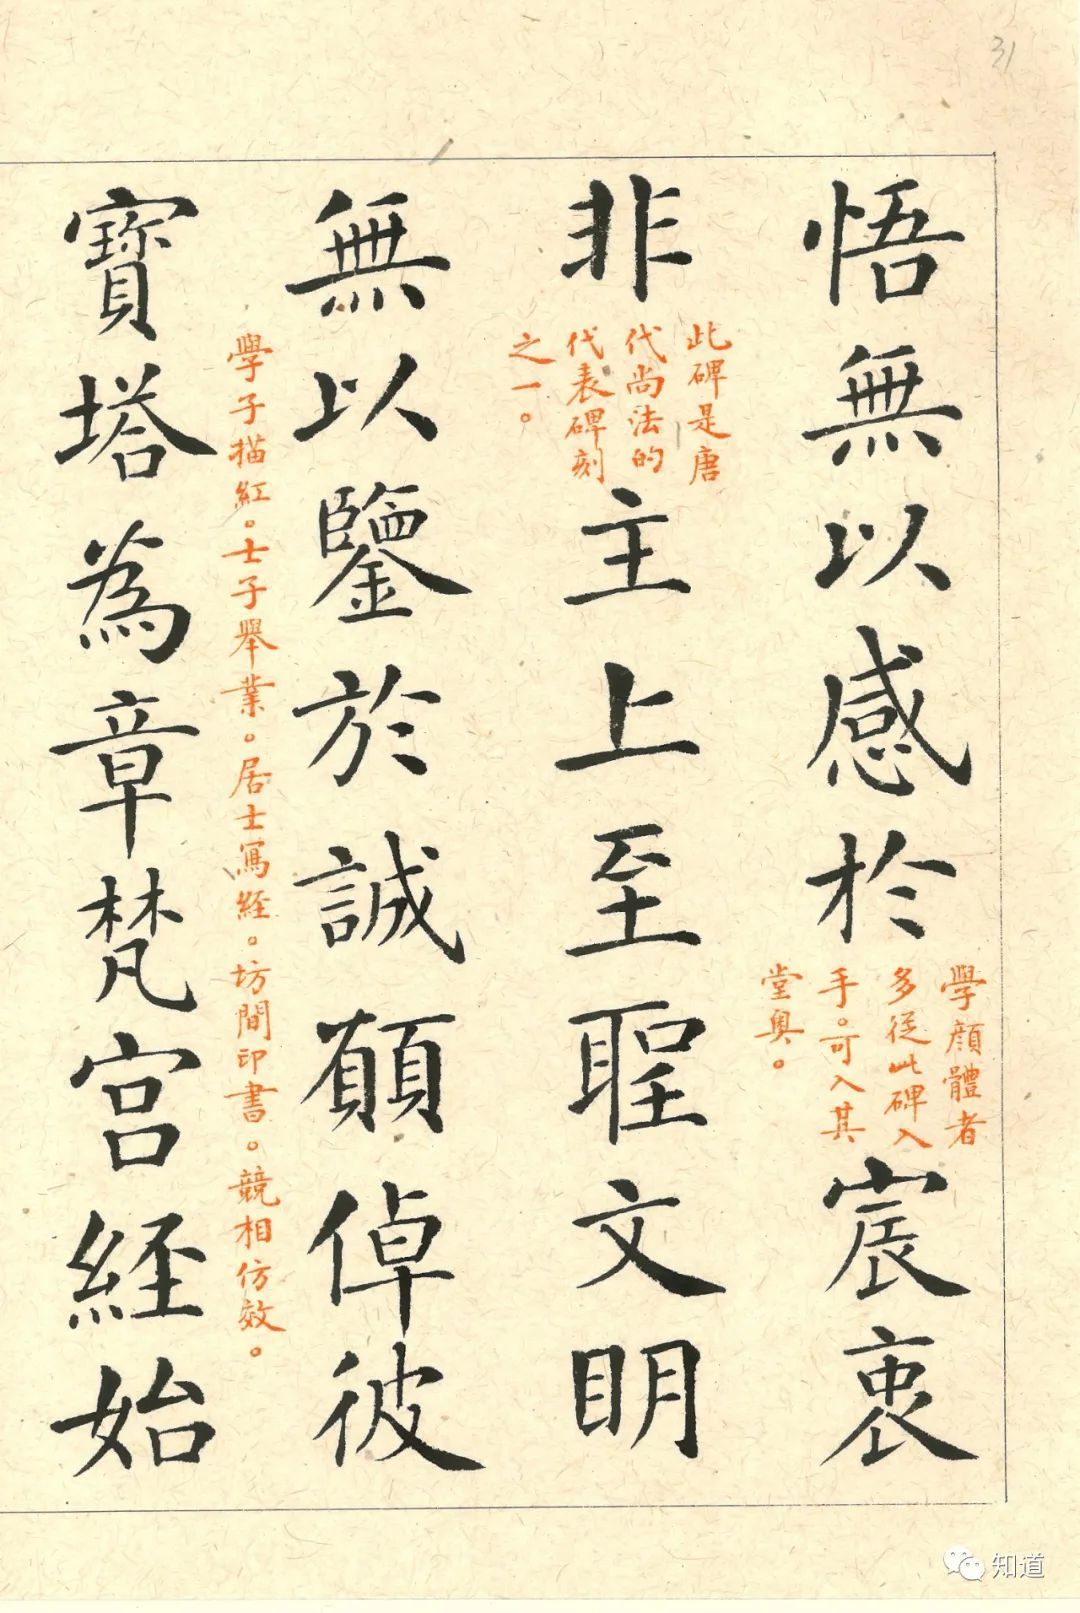 31
悟無以感於
學顔體者
多從此碑入
手。可入其
堂奥。
宸衷
非
此碑是唐
代尚法的
代表碑刻
之一。
主上至聖文明
無以鑒於誠願倬彼
學子描紅。士子舉業。居士寫經。坊間印書。競相仿效。
寶塔為章梵宮経始
知道